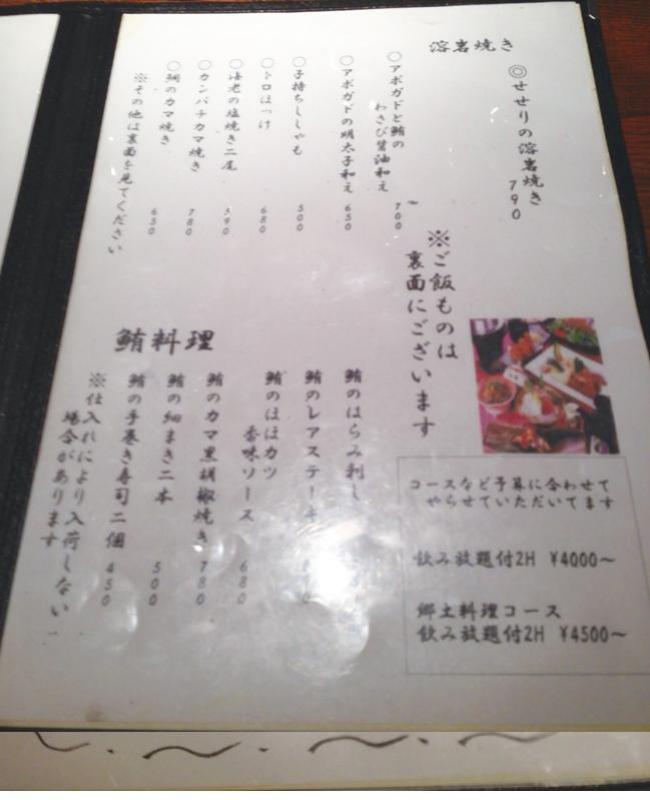 溶岩焼き
◎せせりの溶岩焼き 790
○アボガドと鮪の
わさび醤油和え 700
○アボガドの明太子和え 650
○子持ちししゃも 500
○トロほっけ 680
○海老の塩焼き二尾 590
○カンパチカマ焼き 780
○鯛のカマ焼き 650
※その他は裏面を見てください
※ご飯ものは
裏面にございます
鮪料理
鮪のはらみ刺し
鮪のレアステーキ
鮪のほほカツ
香味ソース 680
鮪のカマ黒胡椒焼き 780
鮪の細まき二本 500
鮪の手巻き寿司二個 450
※仕入れにより入荷しない
場合があります
コースなど予算に合わせて
やらせていただいてます
飲み放題付2H ¥4000～
郷土料理コース
飲み放題付2H ¥4500～